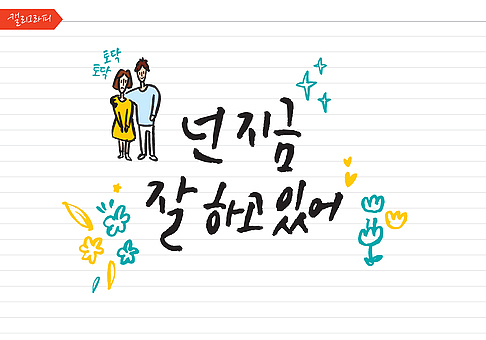 캘리그라피
토닥
토닥
넌 지금
잘 하고 있어